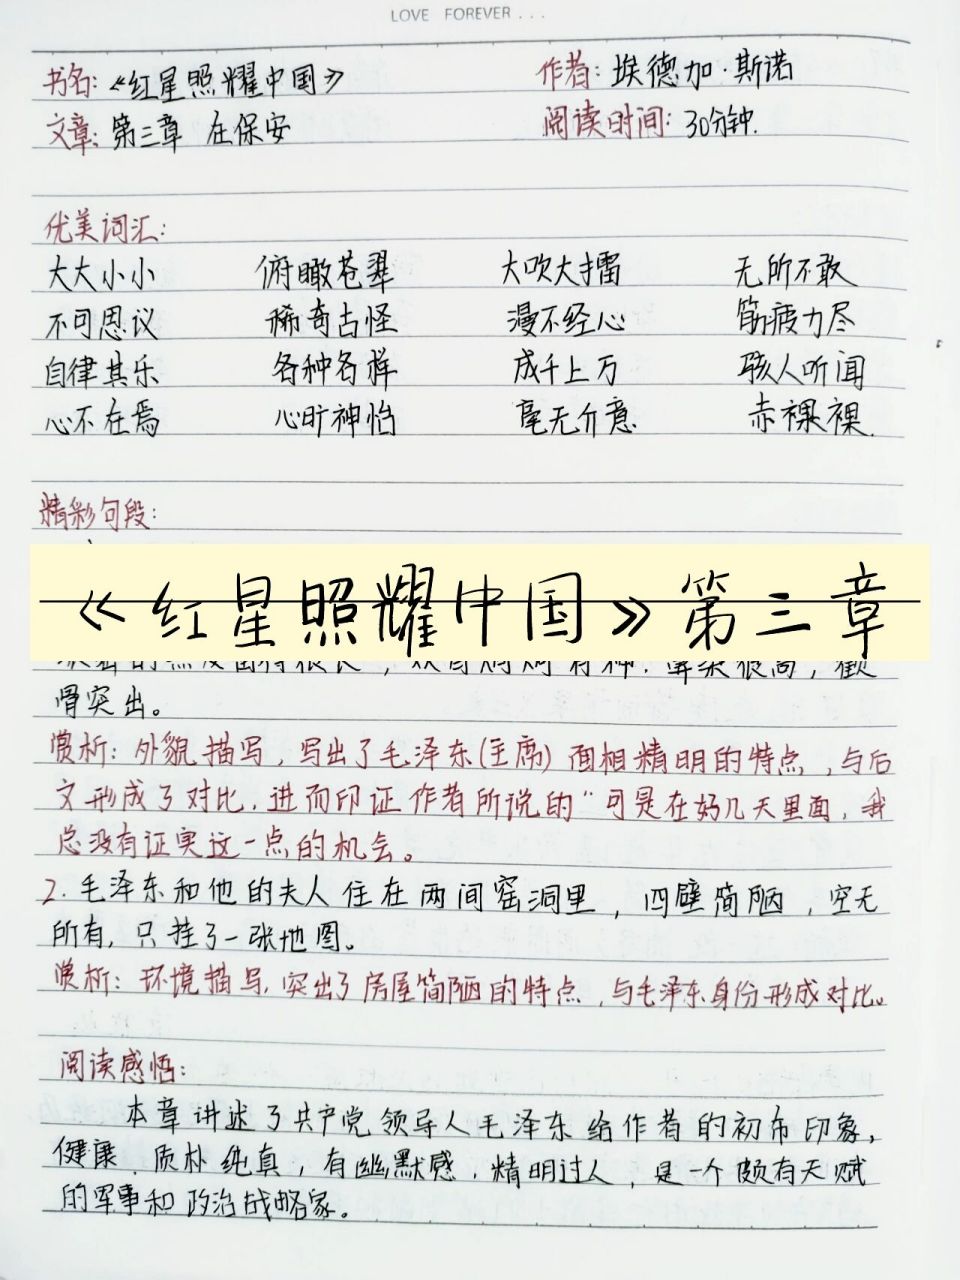 LOVE FOREVER...
书名：《红星照耀中国》 作者：埃德加·斯诺
文章：第三章 在保安 阅读时间：30分钟.
优美词汇：
大大小小 俯瞰苍翠 大吹大擂 无所不敢
不可思议 稀奇古怪 漫不经心 筋疲力尽
自律其乐 各种各样 成千上万 骇人听闻
心不在焉 心旷神怡 毫无介意 赤裸裸.
精彩句段：
《红星照耀中国》第三章
骨突出。
赏析：外貌描写，写出了毛泽东(主席) 面相精明的特点，与后
文形成了对比，进而印证作者所说的“可是在好几天里面，我
总没有证实这一点的机会。
2.毛泽东和他的夫人住在两间窑洞里，四壁简陋，空无
所有，只挂了一张地图。
赏析：环境描写，突出了房屋简陋的特点，与毛泽东身份形成对比。
阅读感悟：
本章讲述了共产党领导人毛泽东给作者的初布印象，
健康、质朴纯真，有幽默感，精明过人，是一个颇有天赋
的军事和政治战略家。